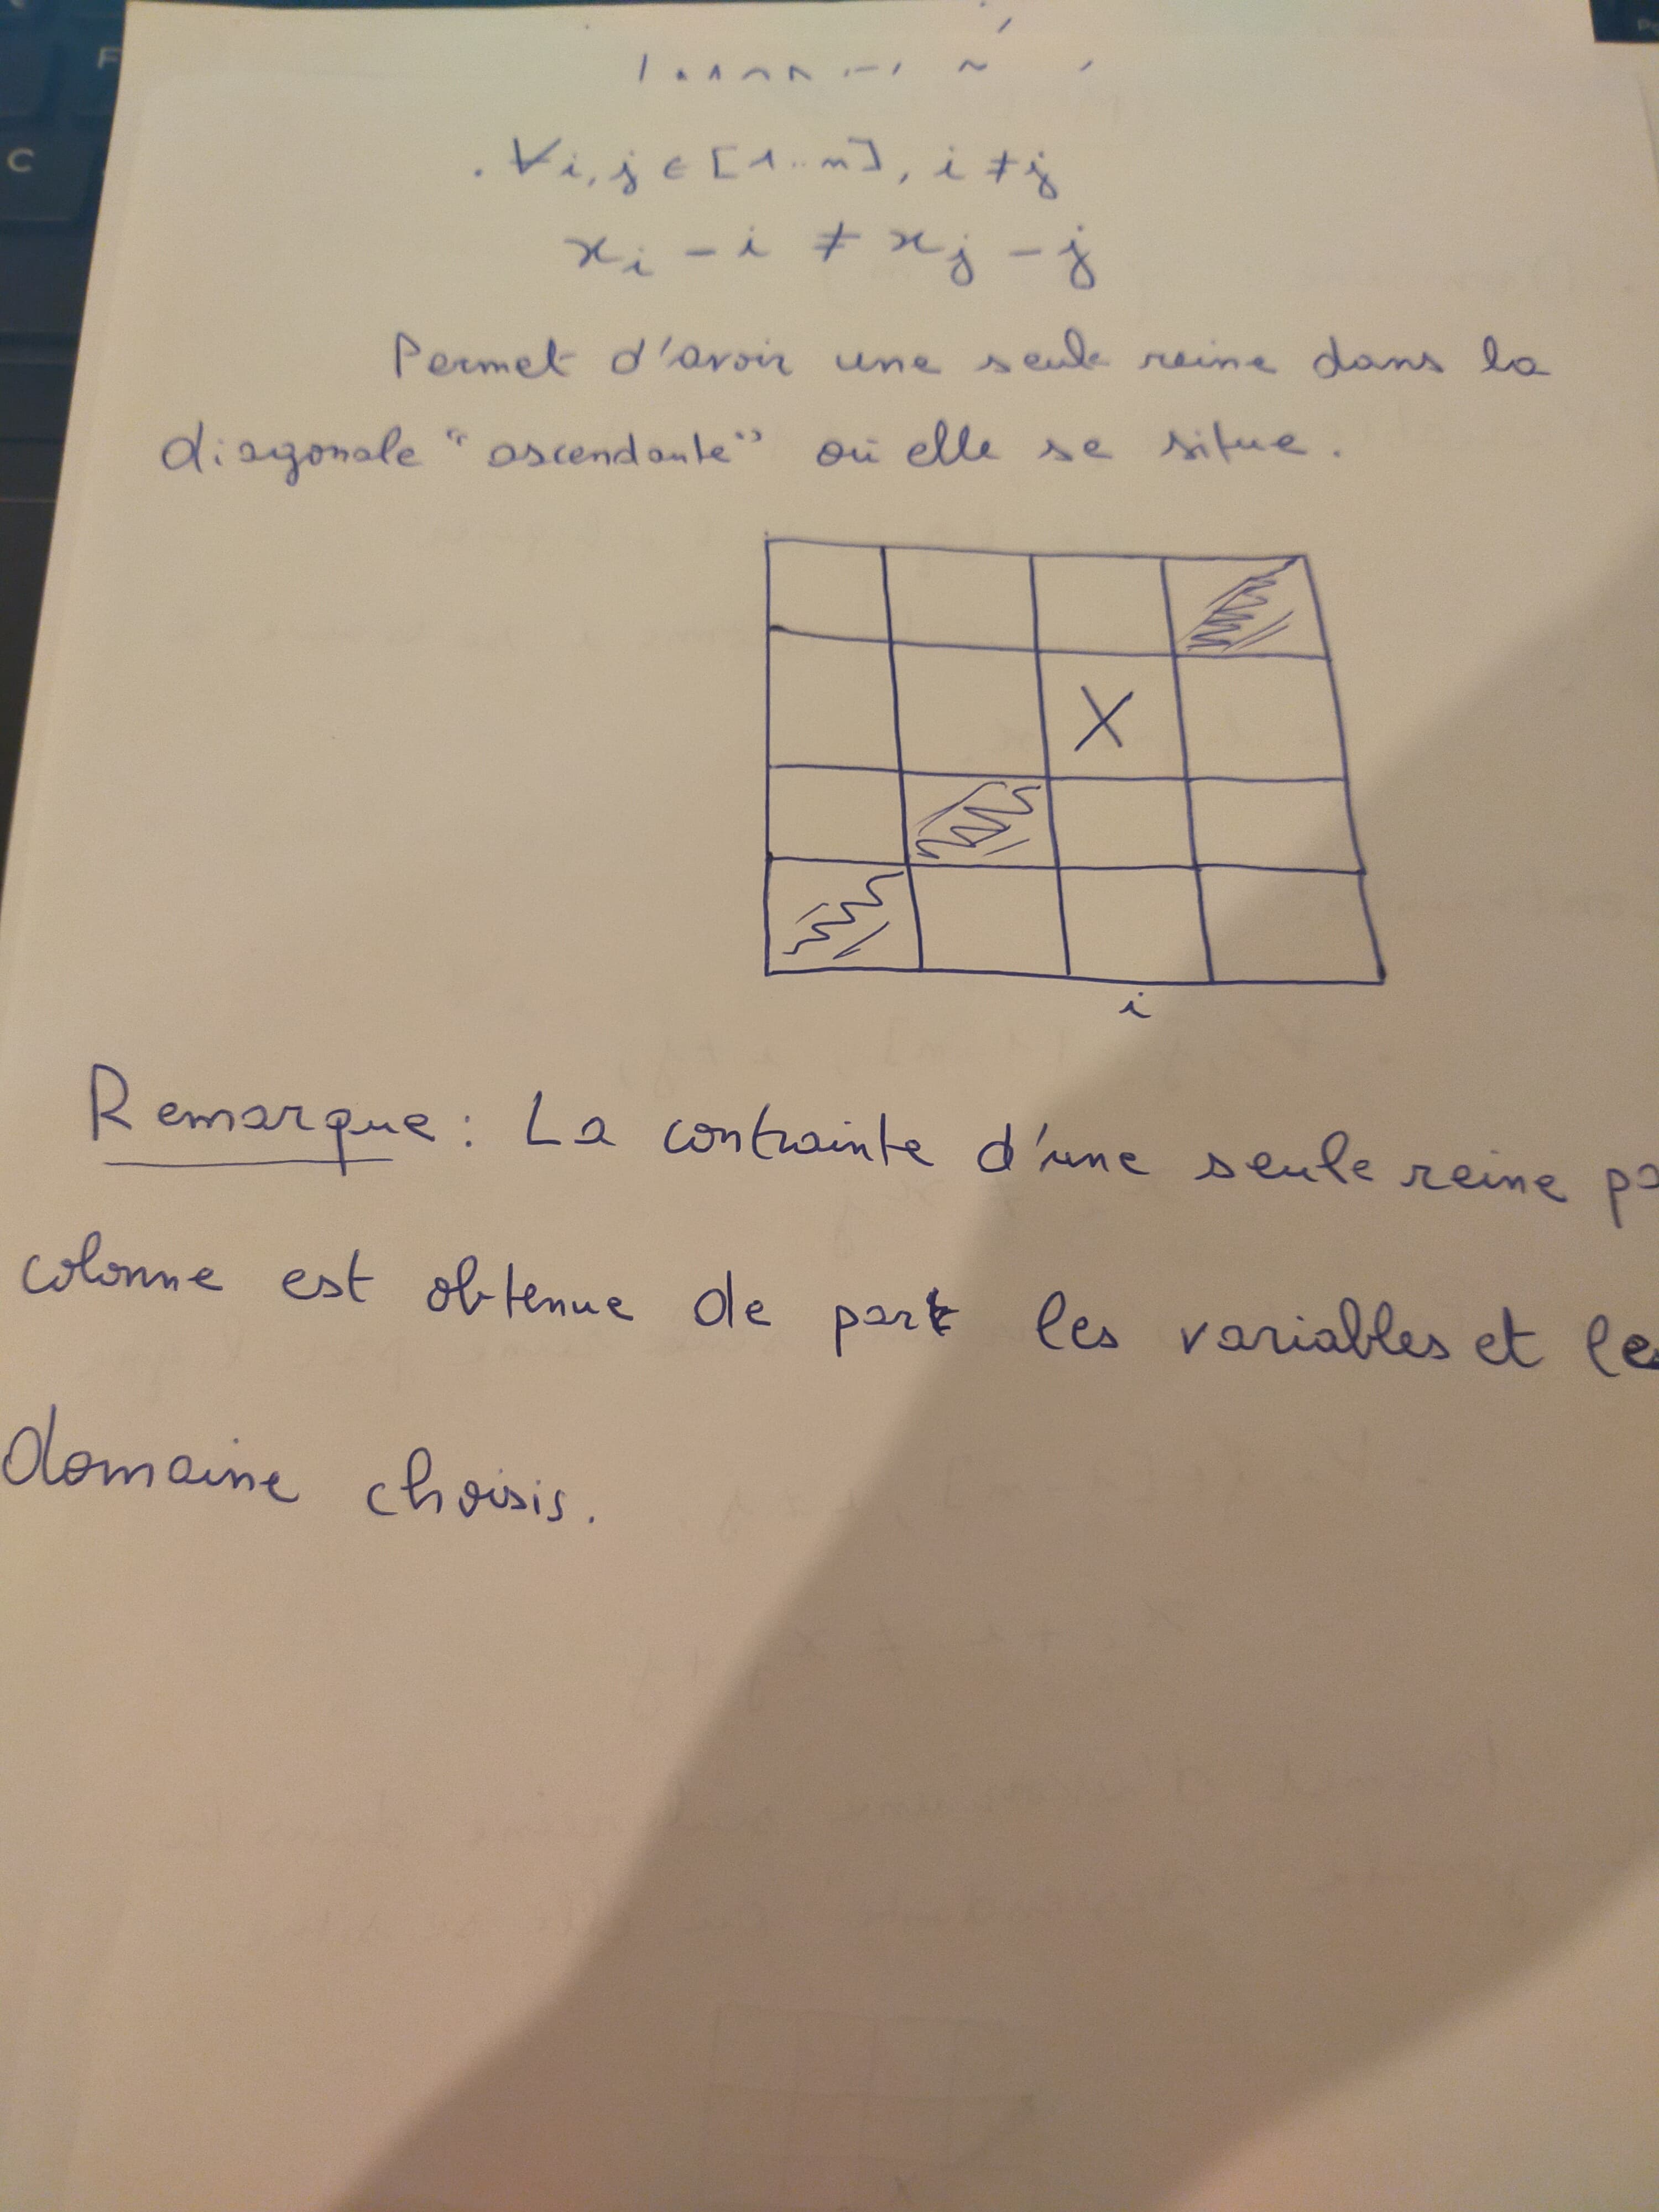 . ∀i, j ∈ [1..n], i ≠ j
xi - i ≠ xj - j
Permet d'avoir une seule reine dans la
diagonale "ascendante" où elle se situe.
X
i
Remarque : La contrainte d'une seule reine pa
colonne est obtenue de part les variables et le
domaine choisis.
F
C